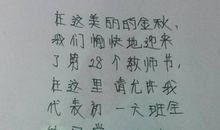 在这美丽的金秋,
我们愉快地迎来
了第28个教师节,
在这里请允许我
代表初一六班全